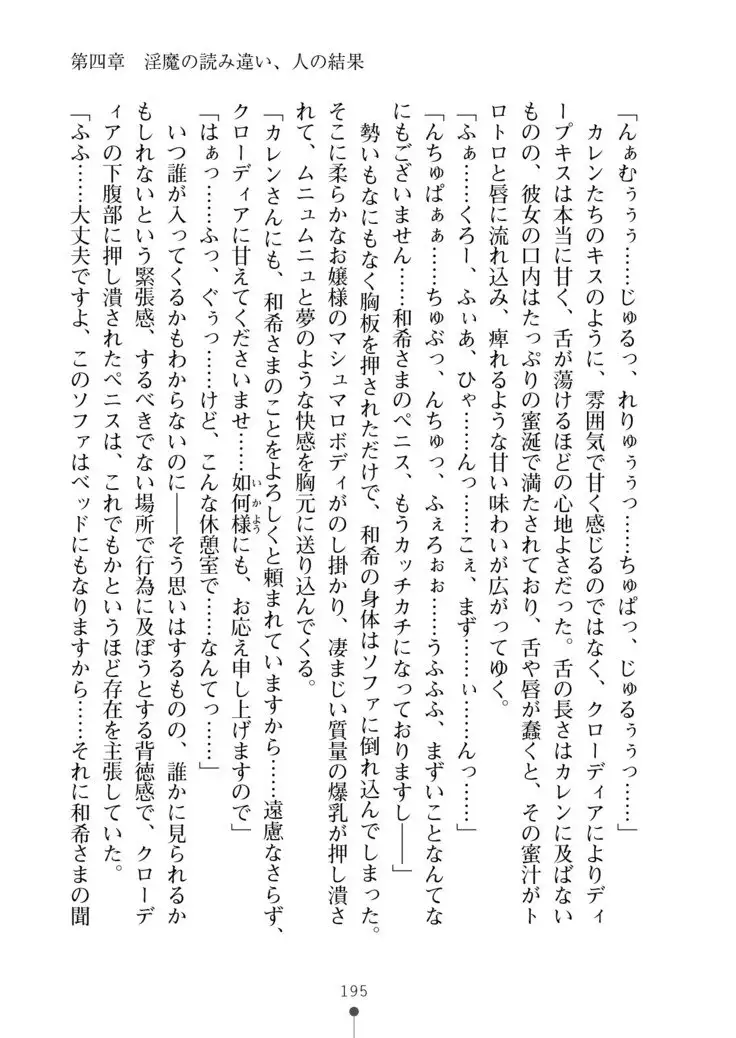 第四章　淫魔の読み違い、人の結果
「んぁむぅぅぅ……じゅるっ、れりゅぅぅっ……ちゅぱっ、じゅるぅぅっ……」
　カレンたちのキスのように、雰囲気で甘く感じるのではなく、クローディアによりディ
ープキスは本当に甘く、舌が蕩けるほどの心地よさだった。舌の長さはカレンに及ばない
ものの、彼女の口内はたっぷりの蜜涎で満たされており、舌や唇が蠢くと、その蜜汁がト
ロトロと唇に流れ込み、痺れるような甘い味わいが広がってゆく。
「ふぁ……くろー、ふぃあ、ひゃ……んっ……こぇ、まず……ぃ……んっ……」
「んちゅぱぁぁ……ちゅぶっ、んちゅっ、ふぇろぉぉ……うふふふ、まずいことなんてな
にもございません……和希さまのペニス、もうカッチカチになっておりますし――」
　勢いもなにもなく胸板を押されただけで、和希の身体はソファに倒れ込んでしまった。
そこに柔らかなお嬢様のマシュマロボディがのし掛かり、凄まじい質量の爆乳が押し潰さ
れて、ムニュムニュと夢のような快感を胸元に送り込んでくる。
「カレンさんにも、和希さまのことをよろしくと頼まれていますから……遠慮なさらず、
クローディアに甘えてくださいませ……如何様にも、お応え申し上げますので」
「はぁっ……ふっ、ぐぅっ……けど、こんな休憩室で……なんてっ……」
　いつ誰が入ってくるかもわからないのに――そう思いはするものの、誰かに見られるか
もしれないという緊張感、するべきでない場所で行為に及ぼうとする背徳感で、クローデ
ィアの下腹部に押し潰されたペニスは、これでもかというほど存在を主張していた。
「ふふ……大丈夫ですよ、このソファはベッドにもなりますから……それに和希さまの聞
195